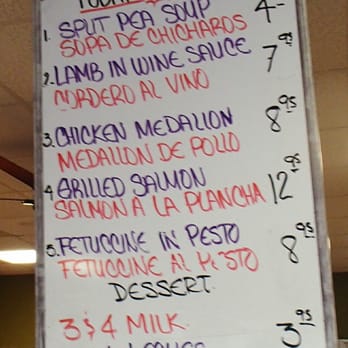 1. SPLIT PEA SOUP 4-
SOPA DE CHICHAROS
2. LAMB IN WINE SAUCE 7 95
CORDERO AL VINO
3. CHICKEN MEDALLION 8 95
MEDALLON DE POLLO
4 GRILLED SALMON 12 95
SALMON A LA PLANCHA
5. FETUCCINE IN PESTO 8 95
FETUCCINE AL PESTO
DESSERT
3 $ 4 MILK 3 95